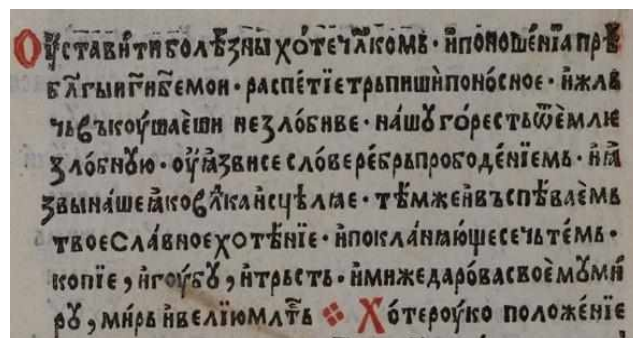 Оу҆ставѝти болѣзны хо́те чл҃комь · и҆ поноше́нїа прѣ
бл҃гыи г҃и б҃е мои · распе́тїе трьпишѝ поно́сное · и҆ жль
чь въкоу́шаеши незло́биве · на́шꙋ го́ресть ѿе́млѥ
зло́бнꙋю · оу҆ꙗ҆́зви се сло́ве ре́брь прободе́нїемь · и҆ ꙗ҆
звы на́ше ꙗ҆ко вл҃ка и҆сцѣ́лꙗе · тѣ́мже и҆ въспѣ́ваемь
твое сла́вное хотѣ́нїе · и҆ покла́нꙗю́ще се чьте́мь ·
копїе , и҆ гоу́бꙋ , и҆ тръсть · и҆миже дарова̀ своемꙋ ми́
рꙋ , ми́рь и҆ ве́лїю мл҇ть ⁘ Хо́те роу́ко положе́нїе